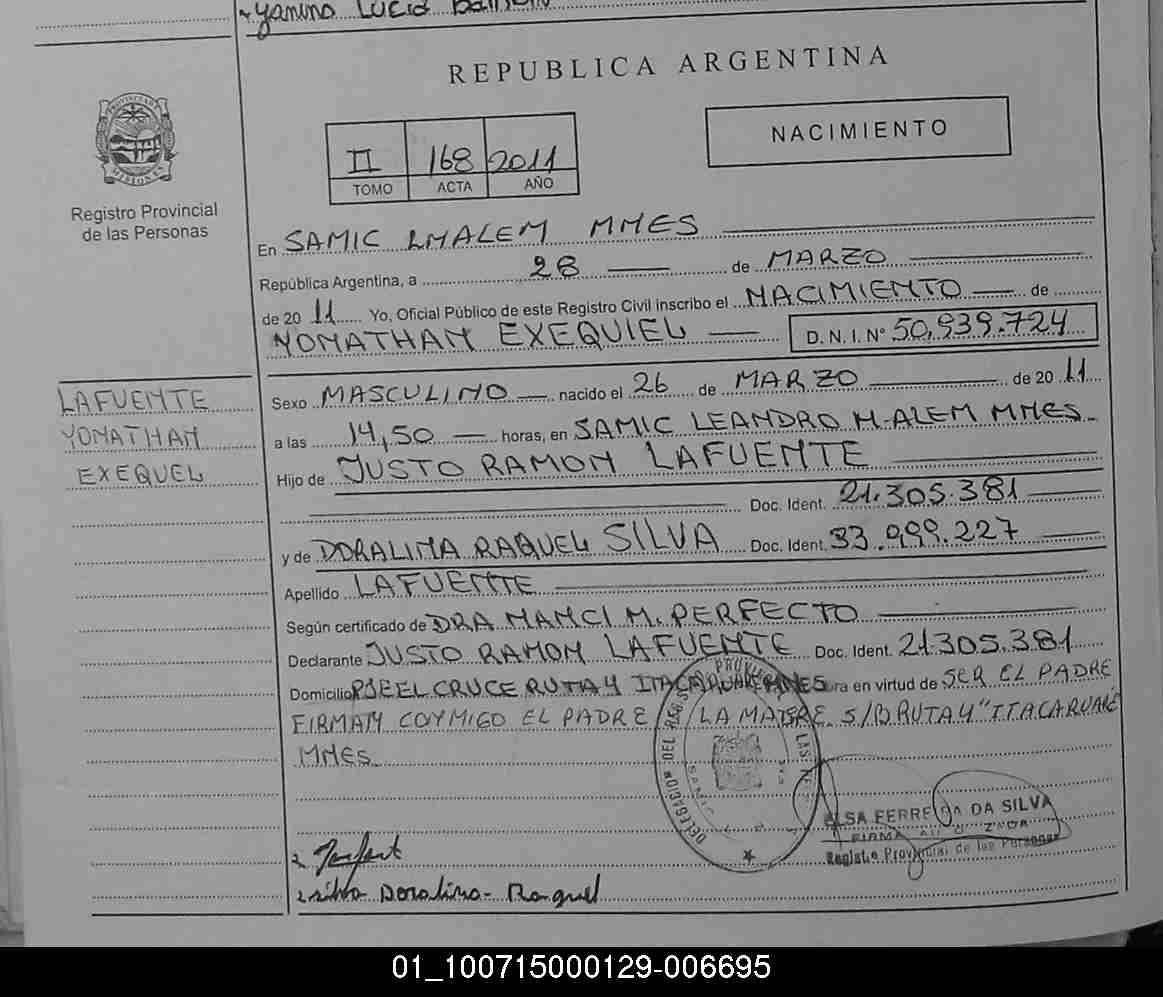 Yanina Lucia
REPUBLICA ARGENTINA
PROVINCIA DE MISIONES
Registro Provincial
de las Personas
II 168 2011
TOMO ACTA AÑO
NACIMIENTO
En SAMIC LMALEM MNES
República Argentina, a 28 de MARZO
de 2011 Yo, Oficial Público de este Registro Civil inscribo el NACIMIENTO de
YONATHAN EXEQUIEL D.N.I.Nº 50,939.724
LAFUENTE
YONATHAN
EXEQUEL
Sexo MASCULINO nacido el 26 de MARZO de 2011
a las 14,50 horas, en SAMIC LEANDRO N-ALEM MNES-
Hijo de JUSTO RAMON LAFUENTE
Doc. Ident. 21.305.381
y de DORALINA RAQUEL SILVA Doc. Ident. 33.999.227
Apellido LAFUENTE
Según certificado de DRA NANCI M. PERFECTO
Declarante JUSTO RAMON LAFUENTE Doc. Ident. 21.305.381
Domicilio PJE EL CRUCE RUTA 4 ITACARUARE MNES ra en virtud de SER EL PADRE
FIRMAN CONMIGO EL PADRE / LA MADRE. S/B. RUTA 4 "ITACARUARE
MNES
DELEGACION DEL REG PROVI LAS PERS
SAMIC
ELSA FERREIRA DA SILVA
FIRMA AUTORIZADA
Registro Provincial de las Personas
Silva Doralina- Raquel
01_100715000129-006695